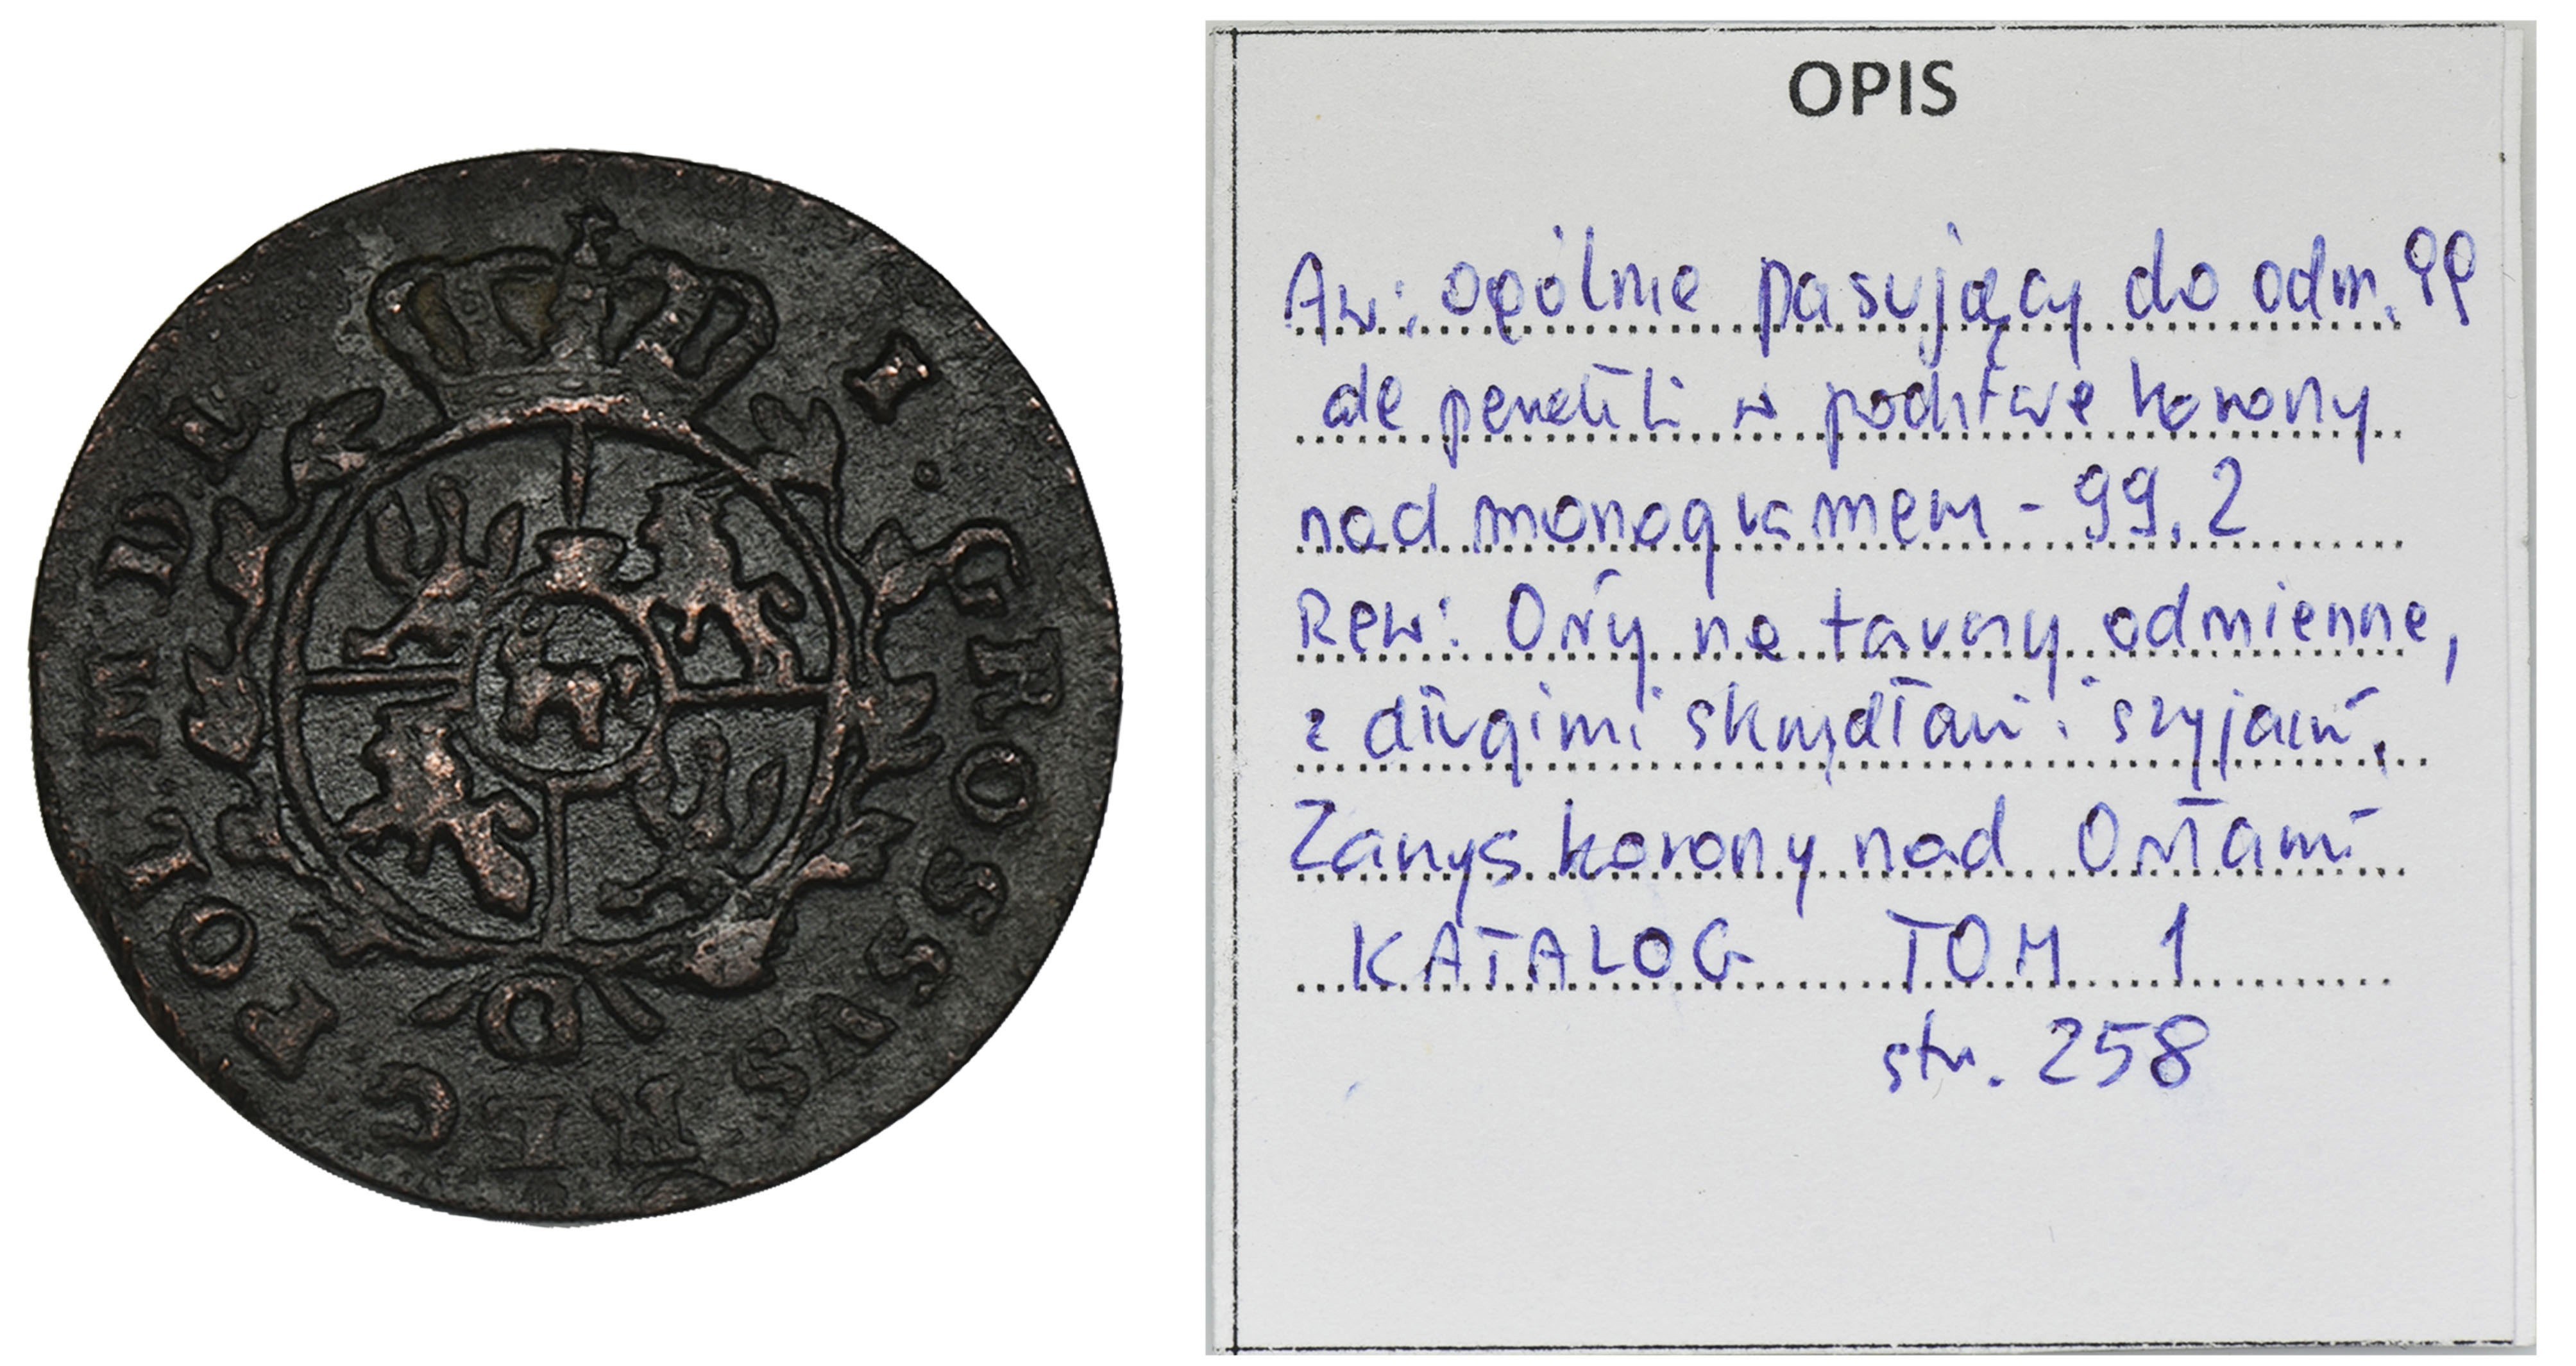 I · GROSSVS REG POL M D L
OPIS
Aw: ogólnie pasujący do odm. 99
ale perełki w podstwie korony
nad monogramem - 99.2
Rew: Orły na tarczy odmienne,
z długimi skrzydłami i szyjami.
Zarys korony nad Orłami
KATALOG TOM 1
str. 258